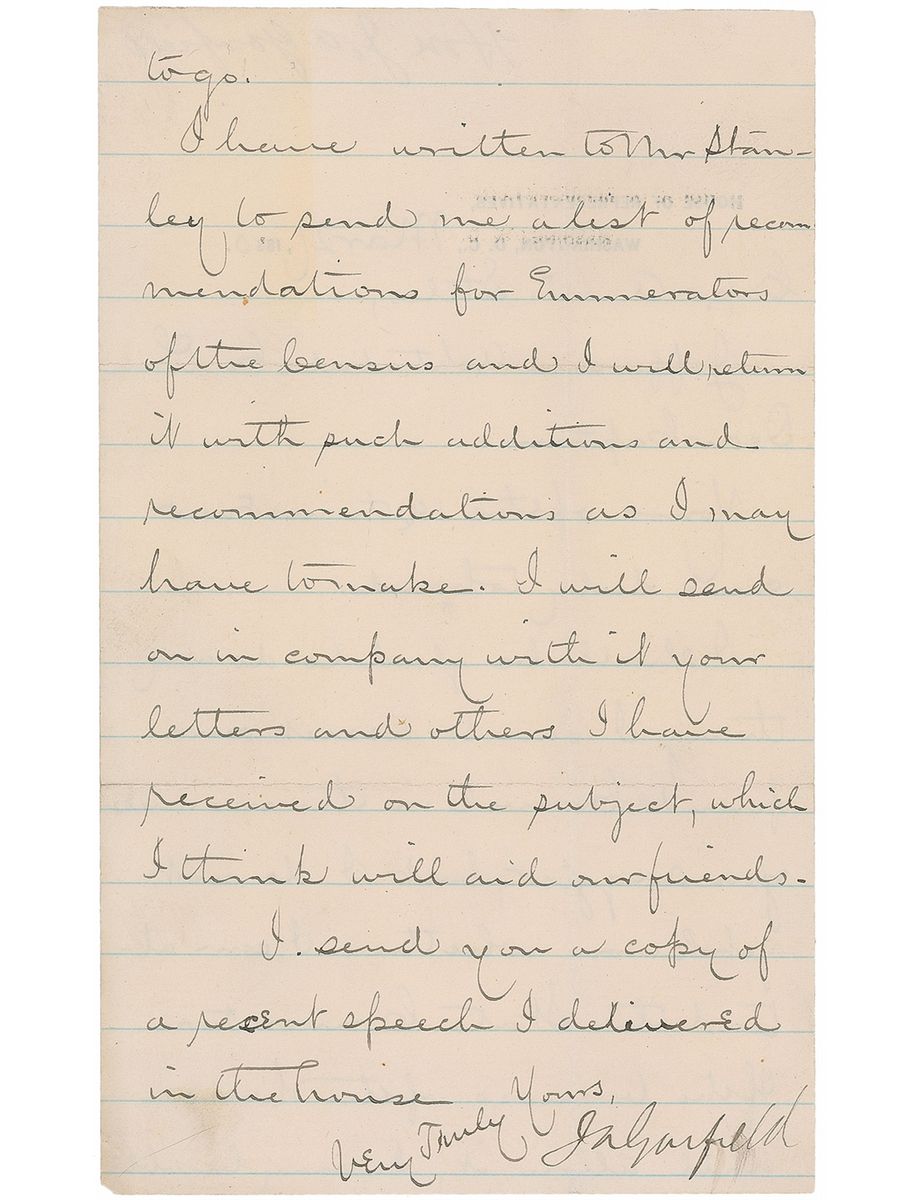 to go.
I have written to Mr Stan-
ley to send me a list of recom
mendations for Enumerators
of the Census and I will return
it with such additions and
recommendations as I may
have to make. I will send
on in company with it your
letters and others I have
received on the subject, which
I think will aid our friends.
I send you a copy of
a recent speech I delivered
in the house
Very Truly Yours,
J A Garfield